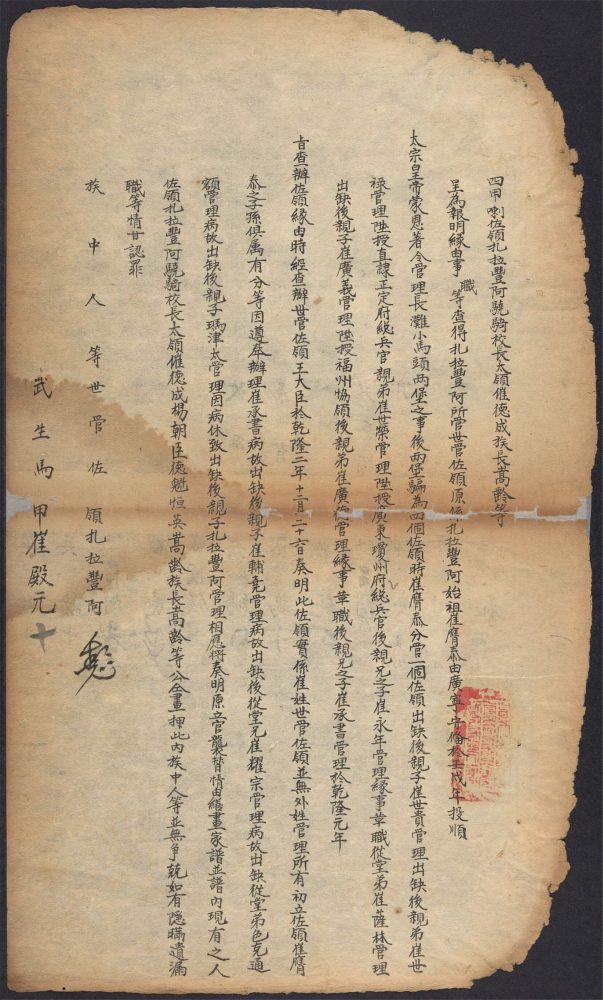 四甲喇佐領扎拉豐阿驍騎校長太領催德成族長嵩齡等
呈為報明緣由事職等查得扎拉豐阿所管世管佐領原係扎拉豐阿始祖崔膺泰由廣寧守備於壬戌年投順
太宗皇帝蒙恩著令管理長灘小馬頭兩堡之事後兩堡騙為四個佐領時崔膺泰分管一個佐領出缺後親子崔世貴管理出缺後親弟崔世
祿管理陞授直隸正定府總兵官親弟崔世榮管理陞授廣東瓊州府總兵官後親兄之子崔永年管理緣事革職從堂弟崔薩林管理
出缺後親子崔廣義管理陞授福州協領後親弟崔廣佐管理緣事革職後親兄之子崔承書管理於乾隆元年
旨查辦佐領緣由時經查辦世管佐領王大臣於乾隆二年十二月二十六日奏明此佐領實係崔姓世管佐領並無外姓管理所有初立佐領崔膺
泰之子孫俱屬有分等因遵奉辦理崔承書病故出缺後親子崔輔堯管理病故出缺後從堂兄崔耀宗管理病故出缺從堂弟色克通
額管理病故出缺後親子瑪津太管理因病休致出缺後親子扎拉豐阿管理相應將奏明原立官襲替情由繕畫家譜並譜內現有之人
佐領扎拉豐阿驍騎校長太領催德成楊朝臣德魁恒英嵩齡族長嵩齡等公仝畫押此內族中人等並無爭競如有隱瞞遺漏
職等情甘認罪
族中人等世管佐領扎拉豐阿
武生馬甲崔殿元十